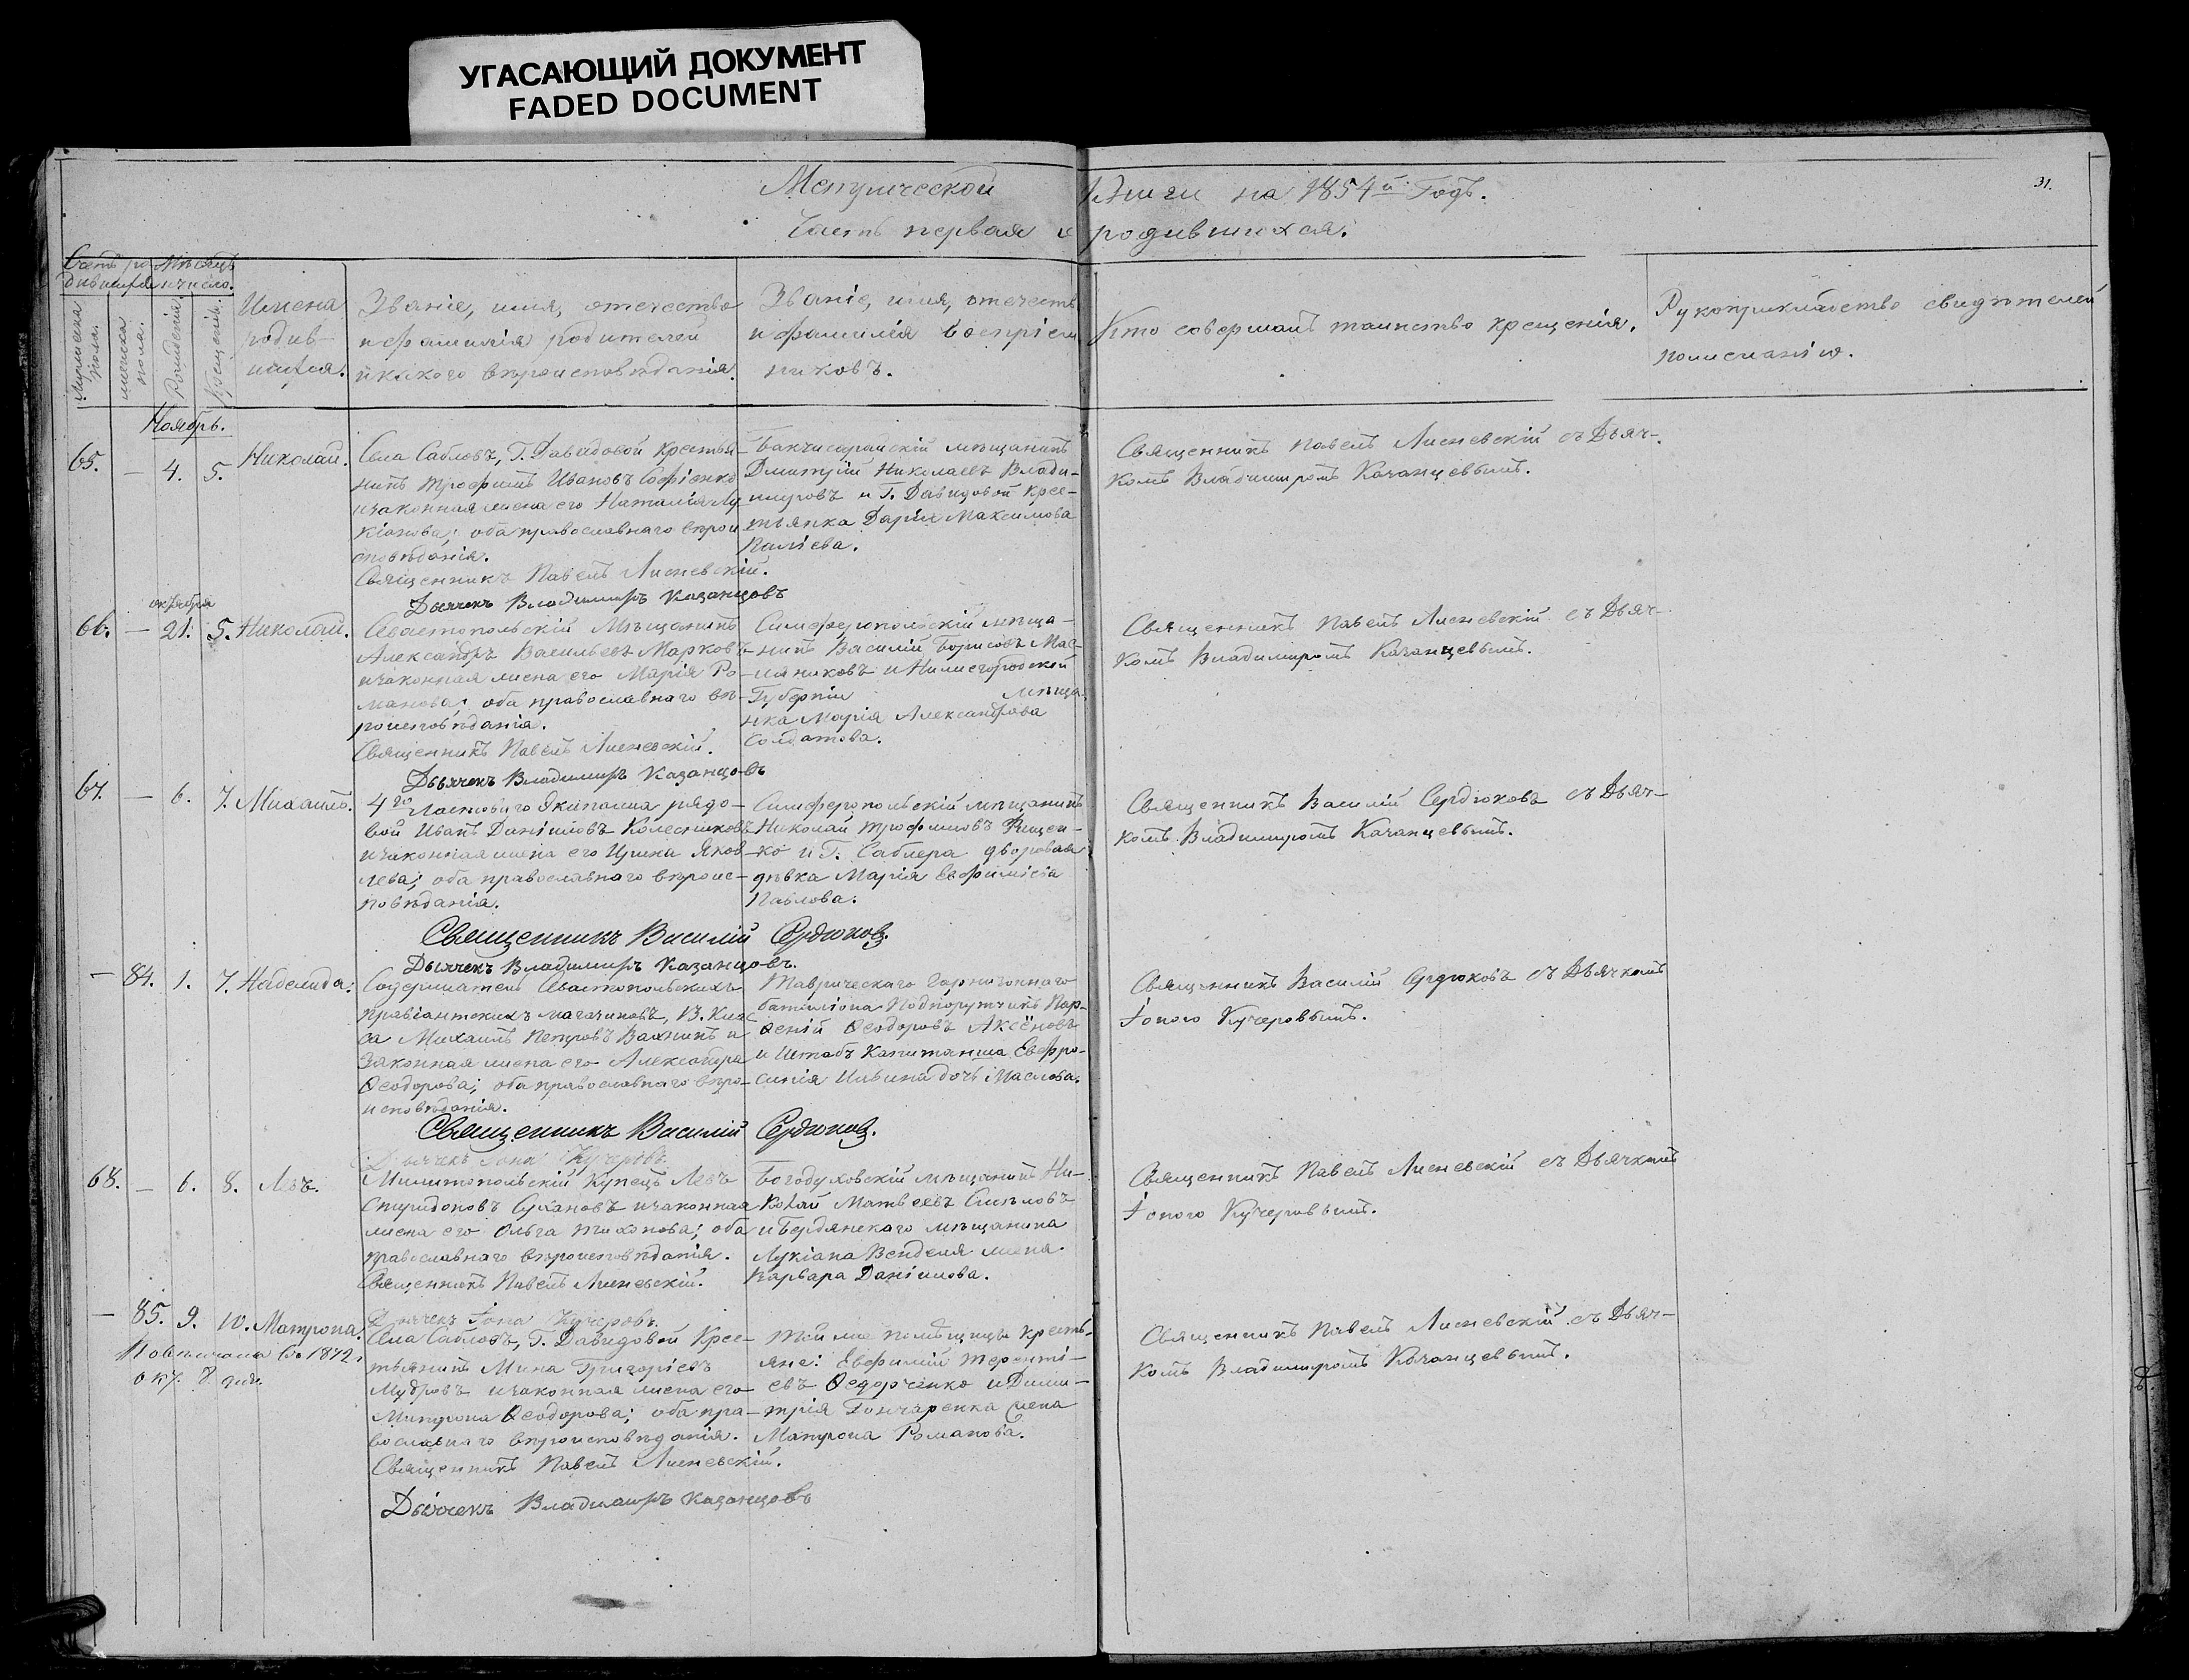 УГАСАЮЩИЙ ДОКУМЕНТ
FADED DOCUMENT
Метрической Книги на 1854й Годъ.
31.
Часть первая о родившихся.
Счетъ ро-
дившихся
Мѣсяцъ
и число.
Мужеска
пола.
женска
пола.
Рожденія.
Крещенія.
Имена
родив-
шихся.
Званіе, имя, отечество
и фамилія родителей
и какого вѣроисповѣданія.
Званіе, имя, отечество
и фамилія воспріем-
никовъ.
Кто совершалъ таинство крещенія.
Рукоприкладство свидѣтелей
по желанію.
Ноябрь.
65. — 4. 5. Николай.
Села Сабловъ, Г. Давыдовой крестья-
нинъ Трофимъ Ивановъ Софіенко
и законная жена его Наталія Лу-
кіанова; оба православнаго вѣрои-
сповѣданія.
Священникъ Павелъ Лисневскій.
Дьячекъ Владимиръ Казанцовъ
Бакчисарайскій мѣщанинъ
Дмитрій Николаевъ Влади-
мировъ и Г. Давидовой крес-
тьянка Дарія Максимова
Священникъ Павелъ Лисневскій съ Дьяч-
комъ Владимиромъ Казанцевымъ.
октября
66. — 21. 5. Николай.
Севастопольскій Мѣщанинъ
Александръ Васильевъ Марковъ
и законная жена его Марія Ро-
манова; оба православнаго вѣ-
роисповѣданія.
Священникъ Павелъ Лисневскій.
Дьячекъ Владимиръ Казанцовъ
Симферопольскій мѣща-
нинъ Василій Борисовъ Мас-
ляниковъ и Нижегородской
Губерніи мѣща-
нка Марія Александрова
Солдатова.
Священникъ Павелъ Лисневскій съ Дьяч-
комъ Владимиромъ Казанцевымъ.
67. — 6. 7. Михаилъ.
4го Ластоваго Экипажа рядо-
вой Иванъ Даніиловъ Колесниковъ
и законная жена его Ирина Яков-
лева; оба православнаго вѣроис-
повѣданія.
Священникъ Василій Сердюковъ.
Дьячекъ Владимиръ Казанцовъ.
Симферопольскій мѣщанинъ
Николай Трофимовъ
и Г. Саблера дворовая
дѣвка Марія Евфиміева
Павлова.
Священникъ Василій Сердюковъ съ Дьяч-
комъ Владимиромъ Казанцевымъ.
— 84. 1. 7. Надежда.
Содержатель Севастопольскихъ
провіантскихъ магазиновъ, 13. клас-
са Михаилъ Петровъ Вахнинъ и
законная жена его Александра
Ѳеодорова; оба православнаго вѣро-
исповѣданія.
Священникъ Василій Сердюковъ.
Дьячекъ Іона Кучеровъ.
Таврическаго Гарнизоннаго
баталіона Подпорутчикъ Пар-
ѳеній Ѳеодоровъ Аксёновъ
и Штабъ Капитанша Евфро-
синія Ильина дочь Маслова.
Священникъ Василій Сердюковъ съ Дьячкомъ
Іоною Кучеровымъ.
68. — 6. 8. Левъ.
Милитопольскій Купецъ Левъ
Спиридоновъ Сухановъ и законная
жена его Ольга Тихонова; оба
православнаго вѣроисповѣданія.
Священникъ Павелъ Лисневскій.
Дьячекъ Іона Кучеровъ.
Богодуховскій мѣщанинъ Ни-
колай Матвеевъ Смѣловъ
и Бердянскаго мѣщанина
Лукіана Венделя жена
Варвара Даніилова.
Священникъ Павелъ Лисневскій съ Дьячкомъ
Іоною Кучеровымъ.
— 85. 9. 10. Матрона.
Повѣнчана въ 1872.
окт. 8 дня.
Села Сабловъ, Г. Давидовой Крес-
тьянинъ Мина Григоріевъ
Мудровъ и законная жена его
Матрона Ѳеодорова; оба пра-
вославнаго вѣроисповѣданія.
Священникъ Павелъ Лисневскій.
Дьячекъ Владимиръ Казанцовъ
Той же помѣщицы кресть-
яне: Евфимій Теренті-
евъ Ѳедорченко и Дими-
трія Гончаренка жена
Матрона Романова.
Священникъ Павелъ Лисневскій съ Дьяч-
комъ Владимиромъ Казанцевымъ.